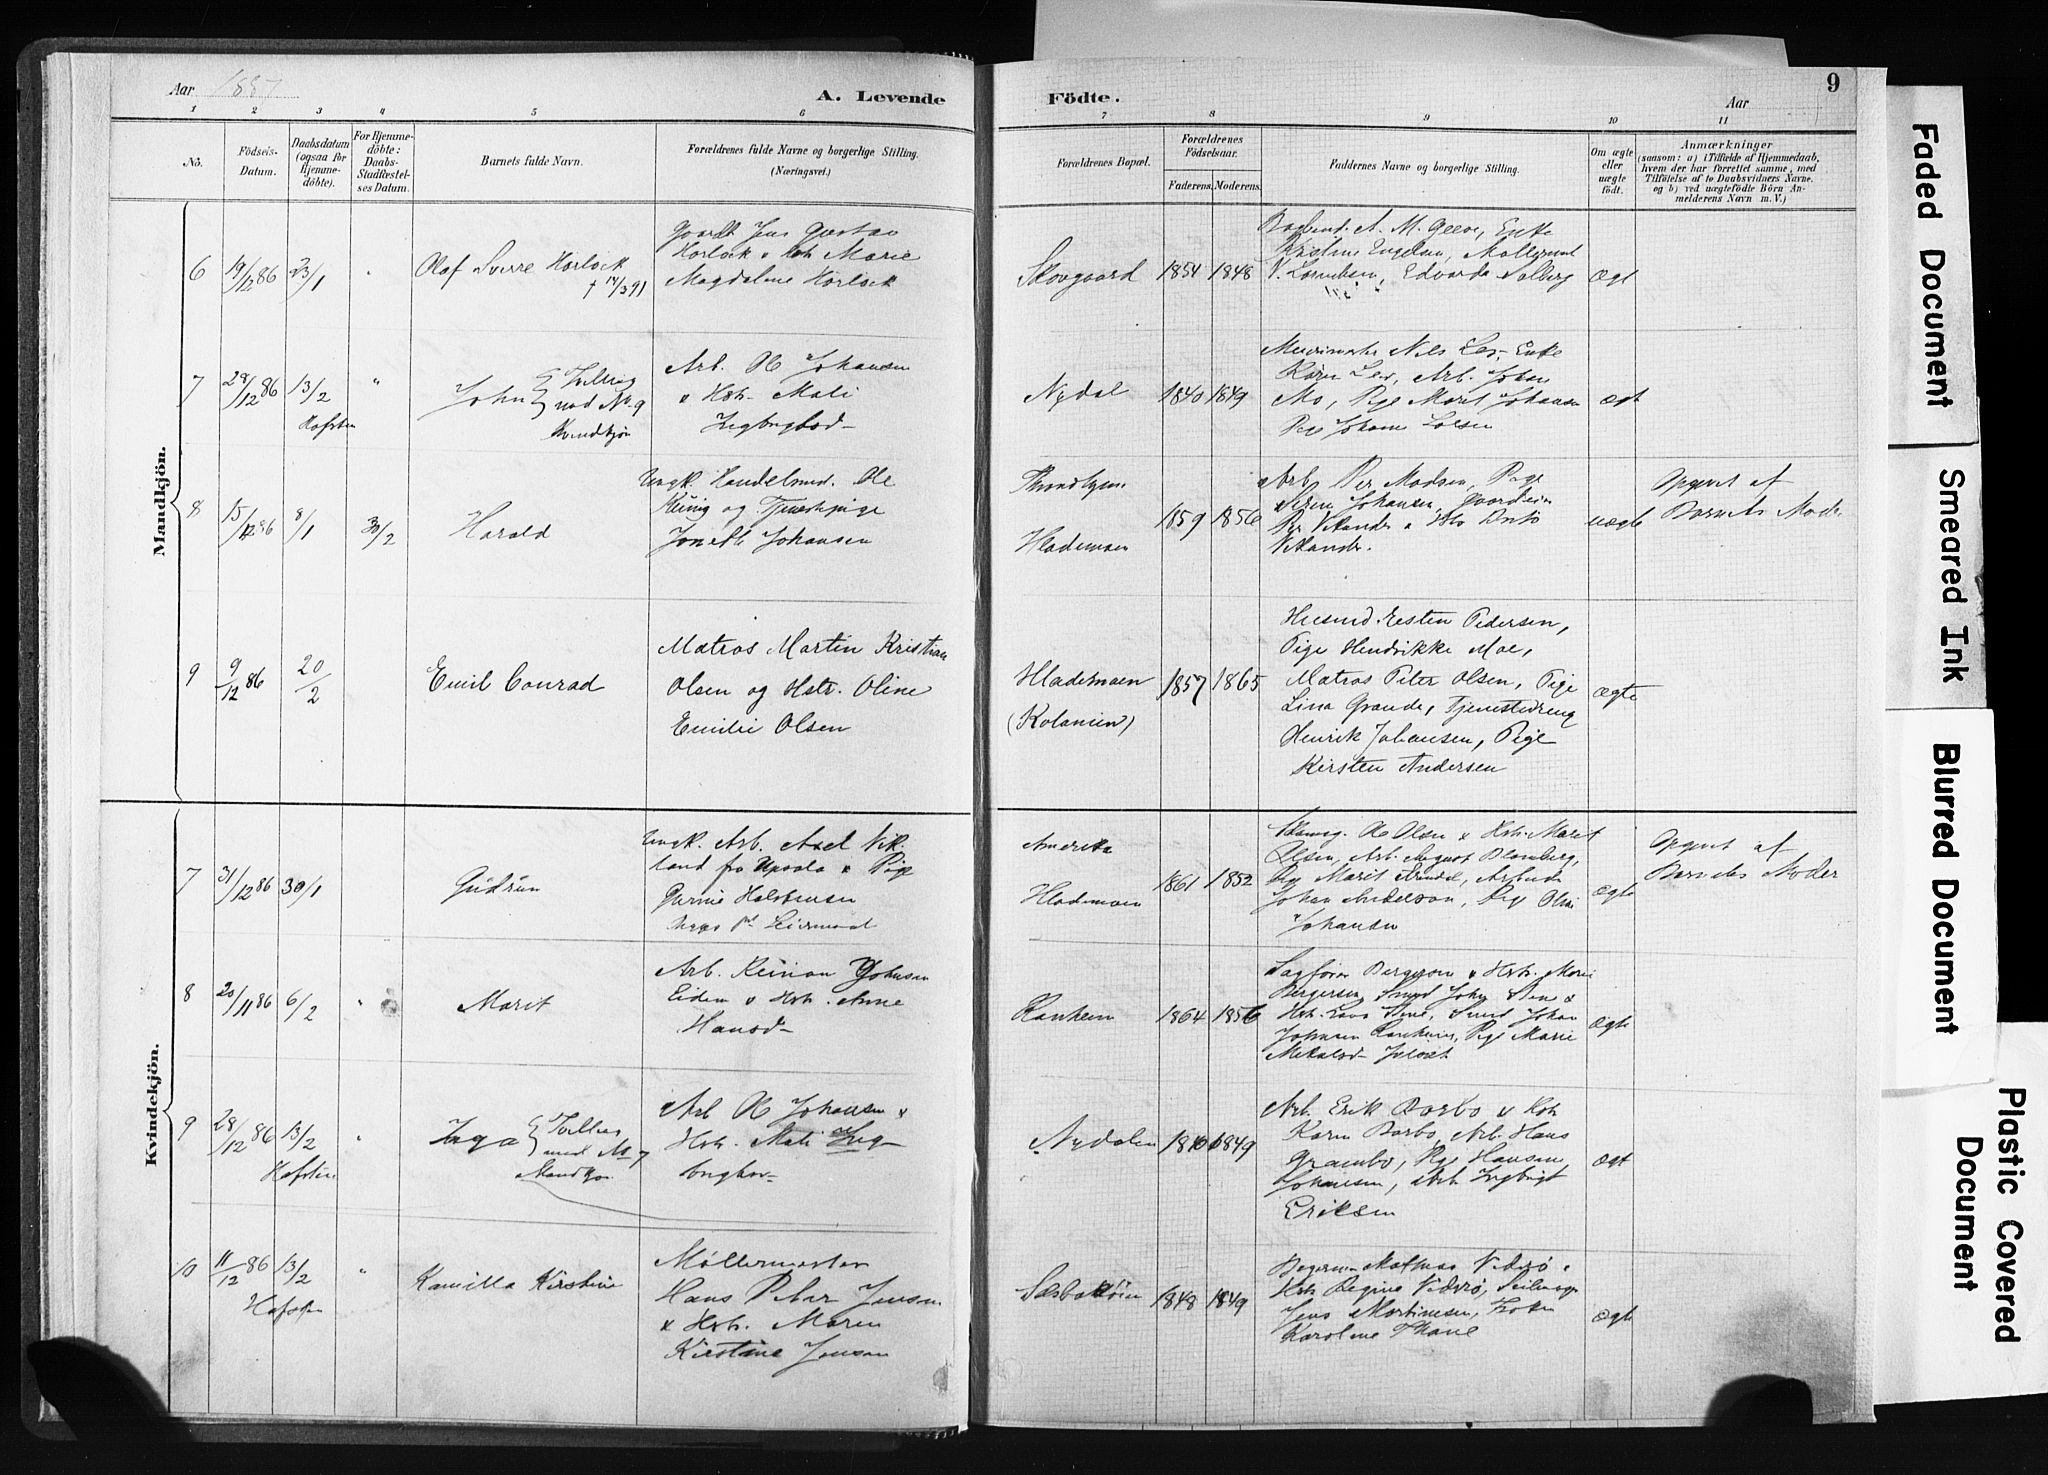 Aar 1887
A. Levende
Födte.
Aar
9
1 2 3 4 5 6 7 8 9 10 11
No.
Födsels-
Datum.
Daabsdatum
(ogsaa for
Hjemme-
döbte).
For Hjemme-
döbte:
Daabs-
Stadfæstel-
ses Datum.
Barnets fulde Navn.
Forældrenes fulde Navne og borgerlige Stilling.
(Næringsvei.)
Forældrenes Bopæl.
Forældrenes
Födselsaar.
Faderens. Moderens.
Faddernes Navne og borgerlige Stilling.
Om ægte
eller
uægte
födt.
Anmærkninger
(saasom: a) i Tilfælde af Hjemmedaab,
hvem der har forrettet samme, med
Tilföielse af to Daabsvidners Navne.
og b) ved uægtefödte Börn An-
melderens Navn m. V.)
Mandkjön.
6 19/12 86 23/1 " Olaf Sverre Horlock
† 14/3 91
Jens Gustav
Horlock & Hstr Marie
Magdalene Horlock
Skovgaard 1854 1848
A. M. Geeve, Enke
Edvarda Solberg
Ægt
7 28/12 86 13/2 " John Tvilling
med No 9
Kvindkjøn
Hafsten
Arb. O Johansen
& Hstr. Mali
Ingbrigtsd-
Nydal 1840 1849
Nils Ler, Enke
Karen Ler, Arb. Johan
Mo, Pige Marit Johansen
Pige Johanna Loesen
ægt
8 15/12 86 8/1 20/2 Harald
Ungk. Handelsmd. Ole
Künig og Tjenestepige
Joneth Johansen
Throndhjem
Hlademoen
1859 1856
Arb. Per Madsen, Pige
Johansen, Gaardeier
Per Vikander & Hstr
Vikander.
uægte
Opgivet af
Barnets Moder
9 9/12 86 20/2 Emil Conrad
Matros Martin Kristian
Olsen og Hstr. Oline
Emilie Olsen
Hlademoen
(Kolonien)
1857 1865
Husmd. Esten Pedersen,
Pige Hendrikke Moe,
Matros Peter Olsen, Pige
Lina Grande, Tjenestedreng
Henrik Johansen, Pige
Kirsten Andersen
ægte
Kvindekjön.
7 31/12 86 30/1 Gudrun
Ungk. Arb. Axel Vik-
land fra Upsala & Pige
Gurine Halstensen
Amerika
Hlademoen
1861 1852
O Olsen & Hstr. Marit
Olsen, Arb. August Blomberg,
Pige Marit Arbeider
Johan Anderson, Pige Oline
Johansen
ægte
Opgivet af
Barnets Moder
8 20/11 86 6/2 " Marit
Arb. Reinan Johnsen
Eidem & Hstr. Anne
Hansd-
Ranheim 1864 1856
Sagfører Bergersen & Hstr. Marie
Bergersen, Smed John &
Hstr. Smed Johan
Johnsen Ranheim, Pige Marie
Mikalsd-
ægte
9 28/12 86 13/2 " Inga Tvilling
med No 7
Mandkjøn
Hafsten
Arb O Johansen &
Hstr. Mali Ing-
brigtsd-
Nydalen 1840 1849
Arb. Erik Barbo & Hstr
Karen Barbo, Arb. Hans
Grambo, Pige Hansine
Johansen, Arb. Ingbrigt
Eriksen
ægt
10 11/12 86 13/2 " Kamilla Kirstine
Hafsten
Møllermester
Hans Peter Jensen
& Hstr. Maren
Kirstine Jensen
1848 1849
Mathias Viderø &
Hstr Regina Viderø,
Jens Mortensen,
Karoline Thane
ægte
Faded Document
Smeared Ink
Blurred Document
Plastic Covered
Document